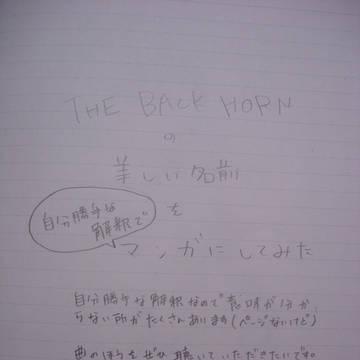 THE BACK HORN
の
美しい名前
自分勝手な
解釈で
を
マンガにしてみた
自分勝手な解釈なので意味が分か
らない所がたくさんあります(ページないけど)
曲のほうをぜひ聴いていただきたいです。